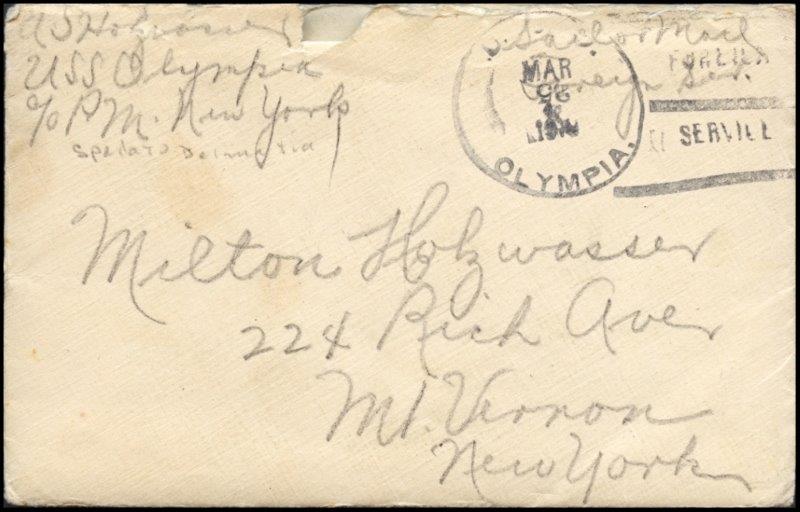 AS Holzwasser
USS Olympia
c/o P.M. New York
Spalato Dalmatia
U.S. Sailor Mail
Foreign Ser.
MAR
26
OLYMPIA.
FOREIGN
SERVICE
Milton Holzwasser
224 Rich Ave
Mt. Vernon
New York